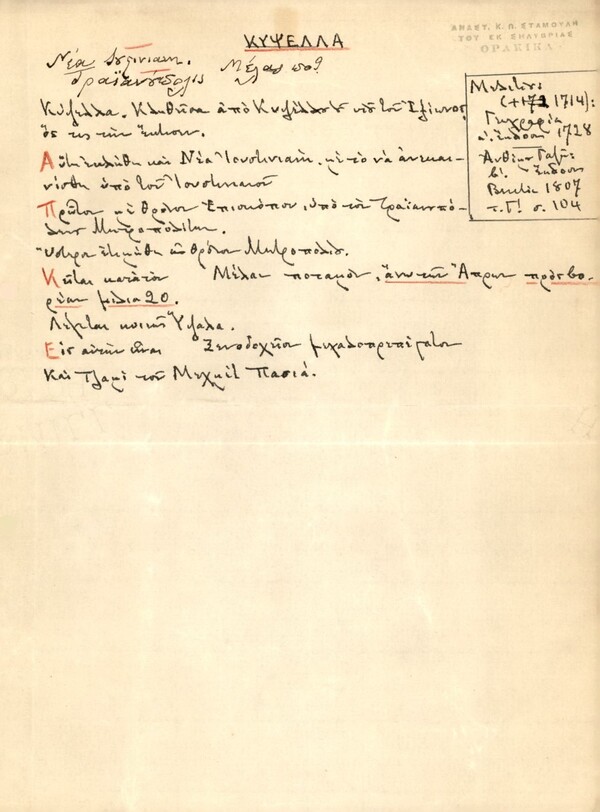 ΚΥΨΕΛΛΑ
ΑΝΔΕΥ. Κ. Π. ΣΤΑΜΟΥΛΗ
ΤΟΥ ΕΚ ΣΗΛΥΒΡΙΑΣ
ΘΡΑΚΙΚΑ
Νέα
Τραϊανούπολις Μέλας ποτ.
Μελετίου
(+1714):
Γεωγραφία
α. ἔκδοσις 1728
Ἀνθίμου Γαζῆ:
β. ἔκδοσις
Βενετία 1807
τ. Γ! σ. 104
Κύψελλα. Κληθεῖσα ἀπὸ Κυψέλλου υἱοῦ τοῦ
ὅς τις τὴν ἔκτισεν.
Αὕτη ἐκλήθη καὶ Νέα Ἰουστινιανὴ, μὲ τὸ νὰ ἀνεκαι-
νίσθη ὑπὸ τοῦ Ἰουστινιανοῦ
Πρῶτον μὲ θρόνον Ἐπισκόπου, ὑπὸ τὸν Τραϊανουπό-
λεως Μητροπολίτην.
Ὕστερον ἐτιμήθη εἰς θρόνον Μητροπόλεως.
Κεῖται κατὰ τὸν Μέλαν ποταμὸν, ἄνω τῆς Ἄπρου πρὸς βο-
ρέαν μίλια 20.
Λέγεται κοινῶς Ὕψαλα.
Εἰς αὐτὴν εἶναι Ξενοδοχεῖον μεγαλοπρεπέστατον
Καὶ Τζαμὶ τοῦ Μεχμὲτ Πασιᾶ.